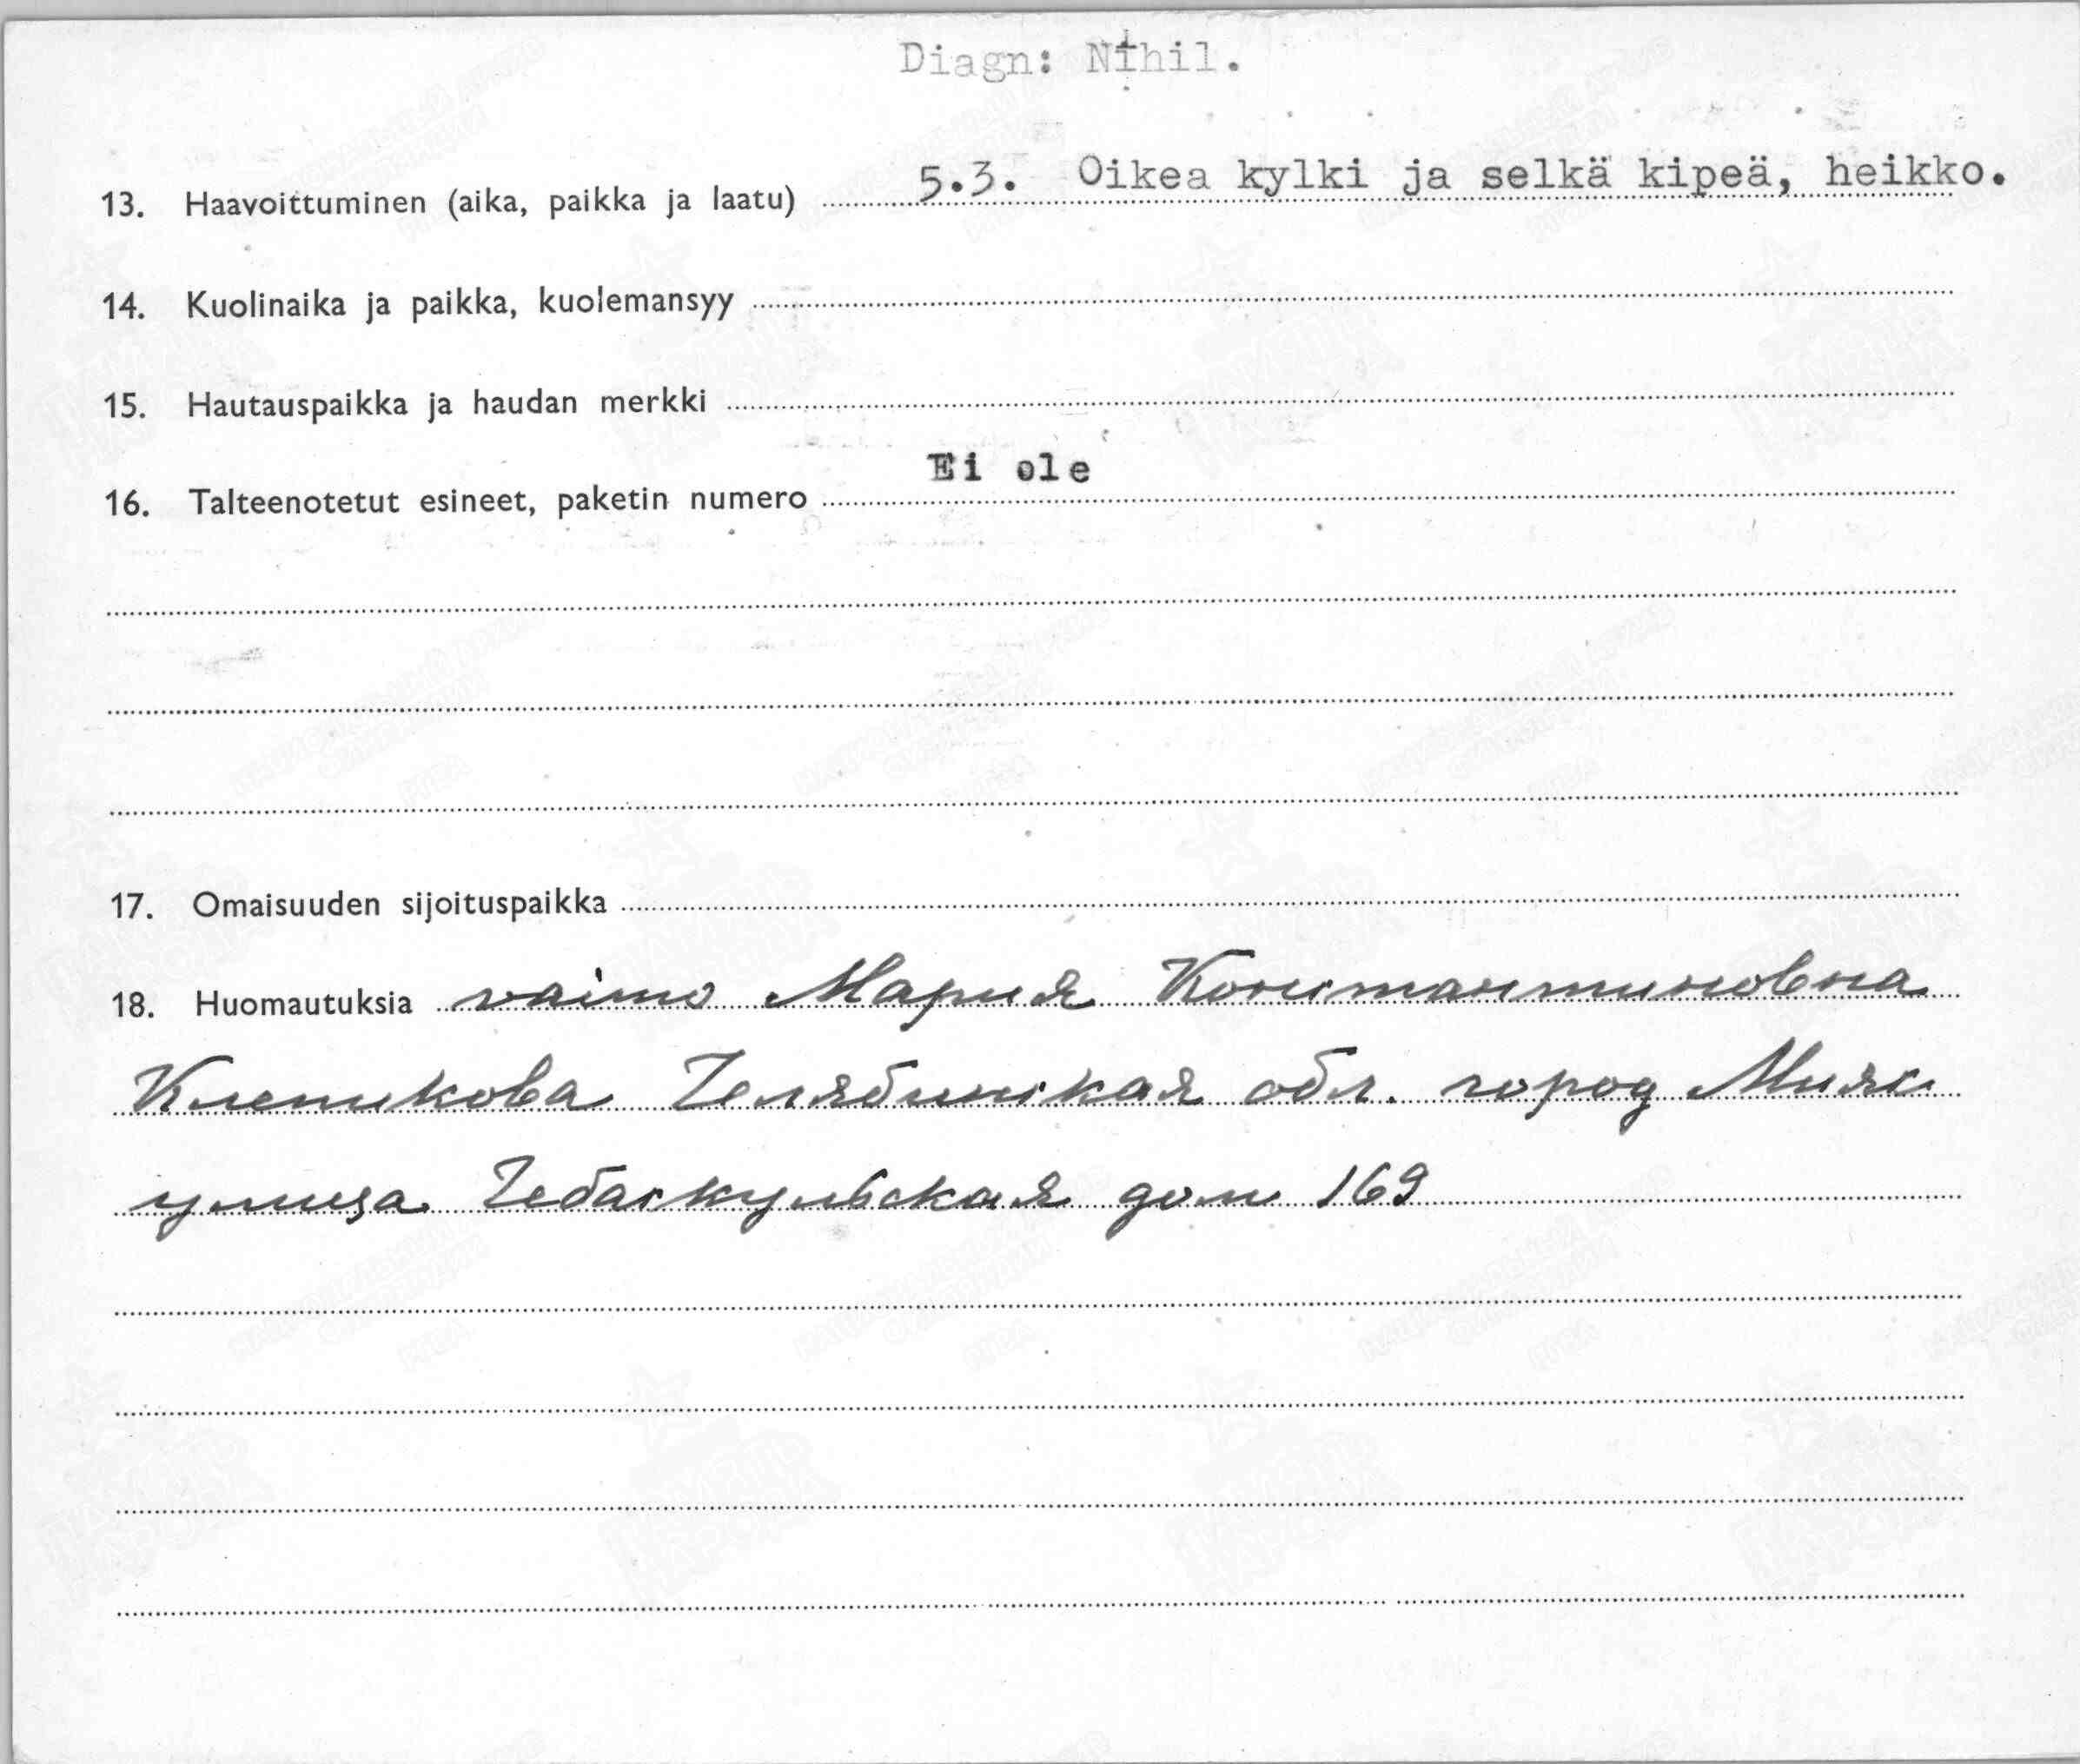 Diagn: Nihil.
13. Haavoittuminen (aika, paikka ja laatu) 5.3. Oikea kylki ja selkä kipeä, heikko.
14. Kuolinaika ja paikka, kuolemansyy
15. Hautauspaikka ja haudan merkki
16. Talteenotetut esineet, paketin numero Ei ole
17. Omaisuuden sijoituspaikka
18. Huomautuksia vaimo Мария Константиновна
Клепикова Челябинская обл. город Мияс
улица Чебаркульская дом 169